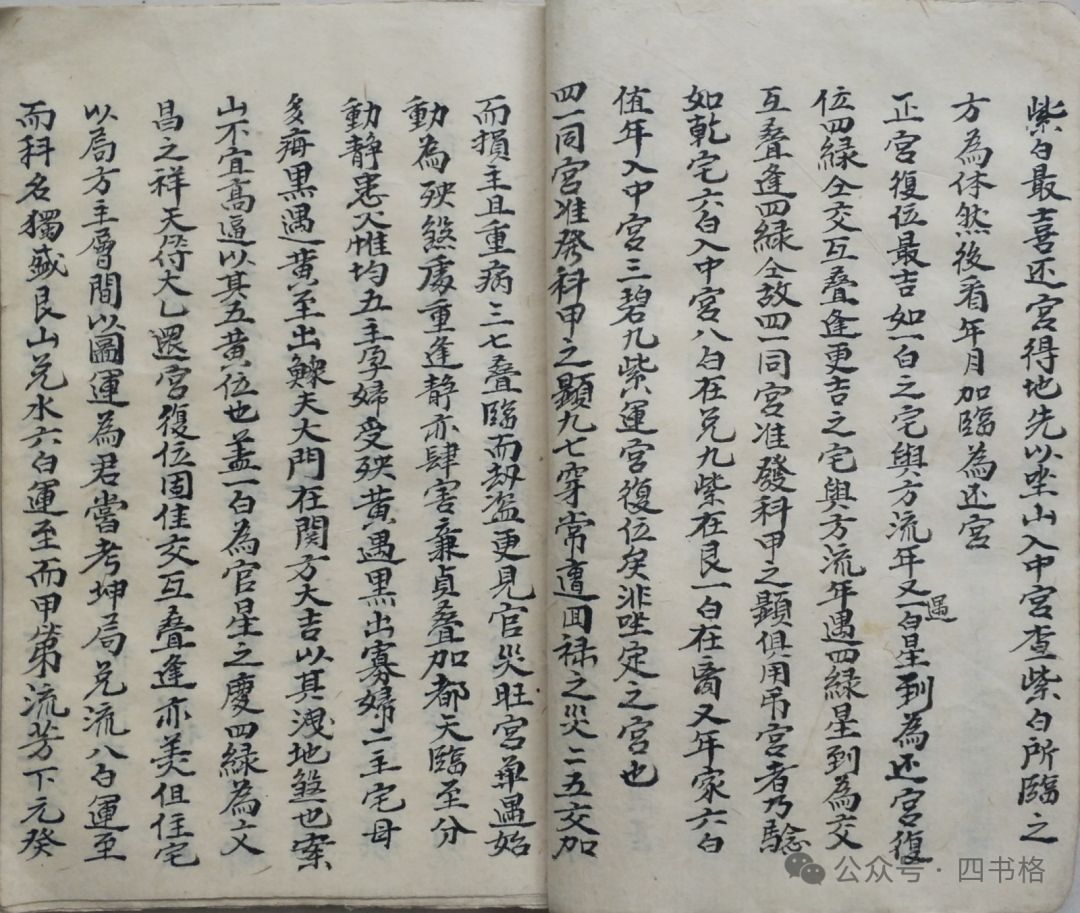 紫白最喜还宮得地先以坐山入中宮查紫白所臨之
方為体然後看年月加臨為还宮
正宮復位最吉如一白之宅與方流年又遇一白星到為还宮復
位四緑仝交互叠逢更吉之宅與方流年遇四緑星到為交
互叠逢四緑仝故四一同宮准發科甲之顕俱用吊宮者乃驗
如乾宅六白入中宮八白在兑九紫在艮一白在离又年家六白
值年入中宮三碧九紫八運宮復位矣非坐定之宮也
四一同宮准発科甲之顕九七穿常遭囬禄之災二五交加
而損主且重病三七叠臨而刼盗更見官災旺宮単遇始
動為殃煞處重逢静亦肆害亷貞叠加都天臨至分
動静患火惟均五主孕婦受殃黄遇黒出寡婦二主宅母
多痗黒遇黄至出鰥夫大門在関方大吉以其洩地煞也案
山不宜高逼以其五黄位也盖一白為官星之慶四緑為文
昌之祥天符太乙還宮復位固佳交互叠逢亦美但住宅
以局方主層間以圖運為君嘗考坤局兑流八白運至
而科名獨盛艮山兑水六白運至而甲第流芳下元癸
公众号·四书格